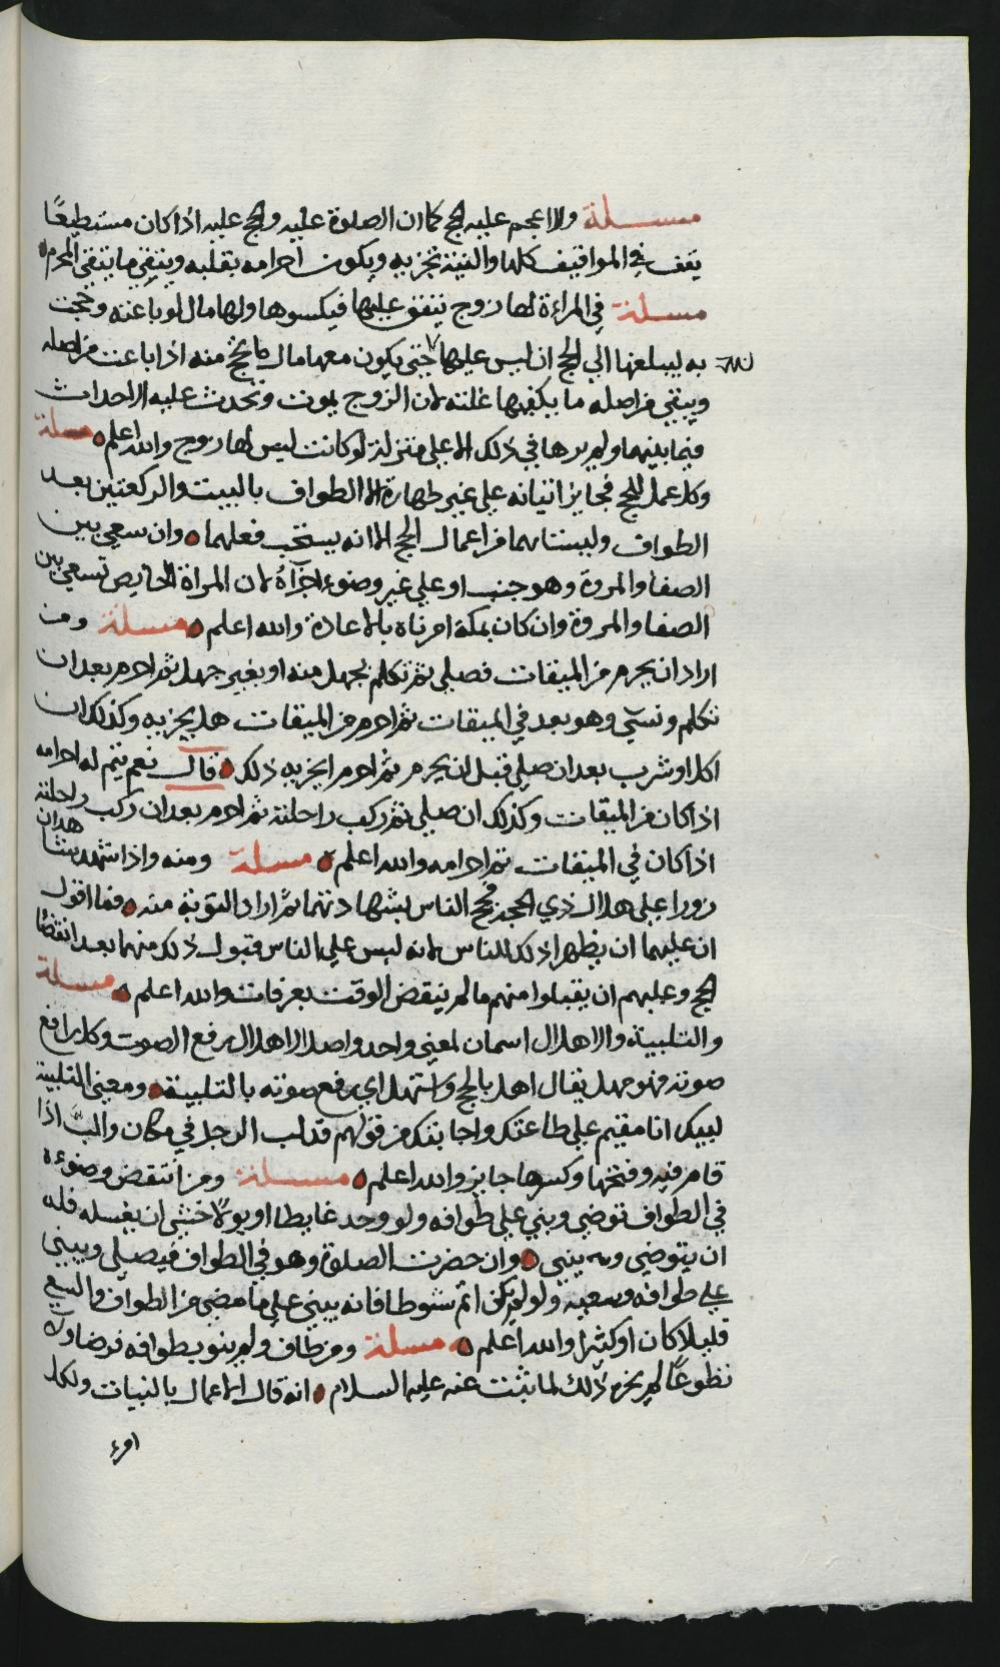 مسلة والاعجم عليه الحج كما ان الصلوة عليه والحج عليه اذا كان مستطيعًا
يقف في المواقيف كلها والنية تجزيه ويكون احرامه بقلبه ويتقي ما يتقي المحرم
مسلة في المراءة لها زوج ينفق عليها فيكسوها ولها مال لو باعته وحجت
به ليبلغها الي الحج ان ليس عليها حتي يكون معها مال ما تحج منه اذا باعت من اصله
ويبقي من اصله ما يكفيها غلته لان الزوج يموت وتحدث عليه الاحداث
فيما بينهما ولم يرها في ذلك الا علي منزلة لو كانت ليس لها زوج والله اعلم مسلة
وكل عمل للحج فجايز اتيانه علي غير طهارة الا الطواف بالبيت والركعتين بعد
الطواف وليستا هما من اعمال الحج الا انه يستحب فعلهما وان سعي بين
الصفا والمروة وهو جنب او علي غير وضوء اجزاه لان المراة الحايض تسعي بين
الصفا والمروة وان كان بمكة امرناه بالاعادة والله اعلم مسلة ومن
اراد ان يحرم من الميقات فصلي ثم تكلم بجهل منه او بغير جهل ثم احرم بعد ان
تكلم ونسي وهو بعد في الميقات ثم احرم من الميقات هل يجزيه وكذلك ان
اكل او شرب بعد ان صلي قبل ان يحرم ثم احرم ايجزيه ذلك قال نعم يتم له احرامه
اذا كان من الميقات وكذلك ان صلي ثم ركب راحلته ثم احرم بعد ان ركب راحلته
اذا كان في الميقات تم احرامه والله اعلم مسلة ومنه واذا شهد شاهدان
زورا علي هلال ذي الحجة فحج الناس بشهادتهما ثم ارادا التوبة منه فما اقول
ان عليهما ان يظهرا ذلك للناس لانه ليس علي الناس قبول ذلك منهما بعد انقضا
الحج وعليهم ان يقبلوا منهم ما لم ينقض الوقت بعرفات والله اعلم مسلة
والتلبية والاهلال اسمان لمعني واحد واصل الاهلال برفع الصوت وكل رافع
صوته فهو مهل يقال اهل بالحج واستهل اي رفع صوته بالتلبية ومعني التلبية
لبيك انا مقيم علي طاعتك واجابتك من قولهم قد لب الرجل في مكان والب اذا
قام فيه وفتحها وكسرها جايز والله اعلم مسلة ومن انتقض وضوءه
في الطواف توضي وبني علي طوافه ولو وجد غايطا او بولا خشي ان يغسله فله
ان يتوضي ويبني وان حضرت الصلوة وهو في الطواف فيصلي ويبني
علي طوافه وسعيه ولو لم يكن اتم شوطا فانه يبني علي ما مضي من الطواف والسعي
قليلا كان او كثيرا والله اعلم مسلة ومن طاف ولم ينو بطوافه فرضا ولا
تطوعًا لم يجزه ذلك لما ثبت عنه عليه السلام انه قال الاعمال بالنيات ولكل
امرء